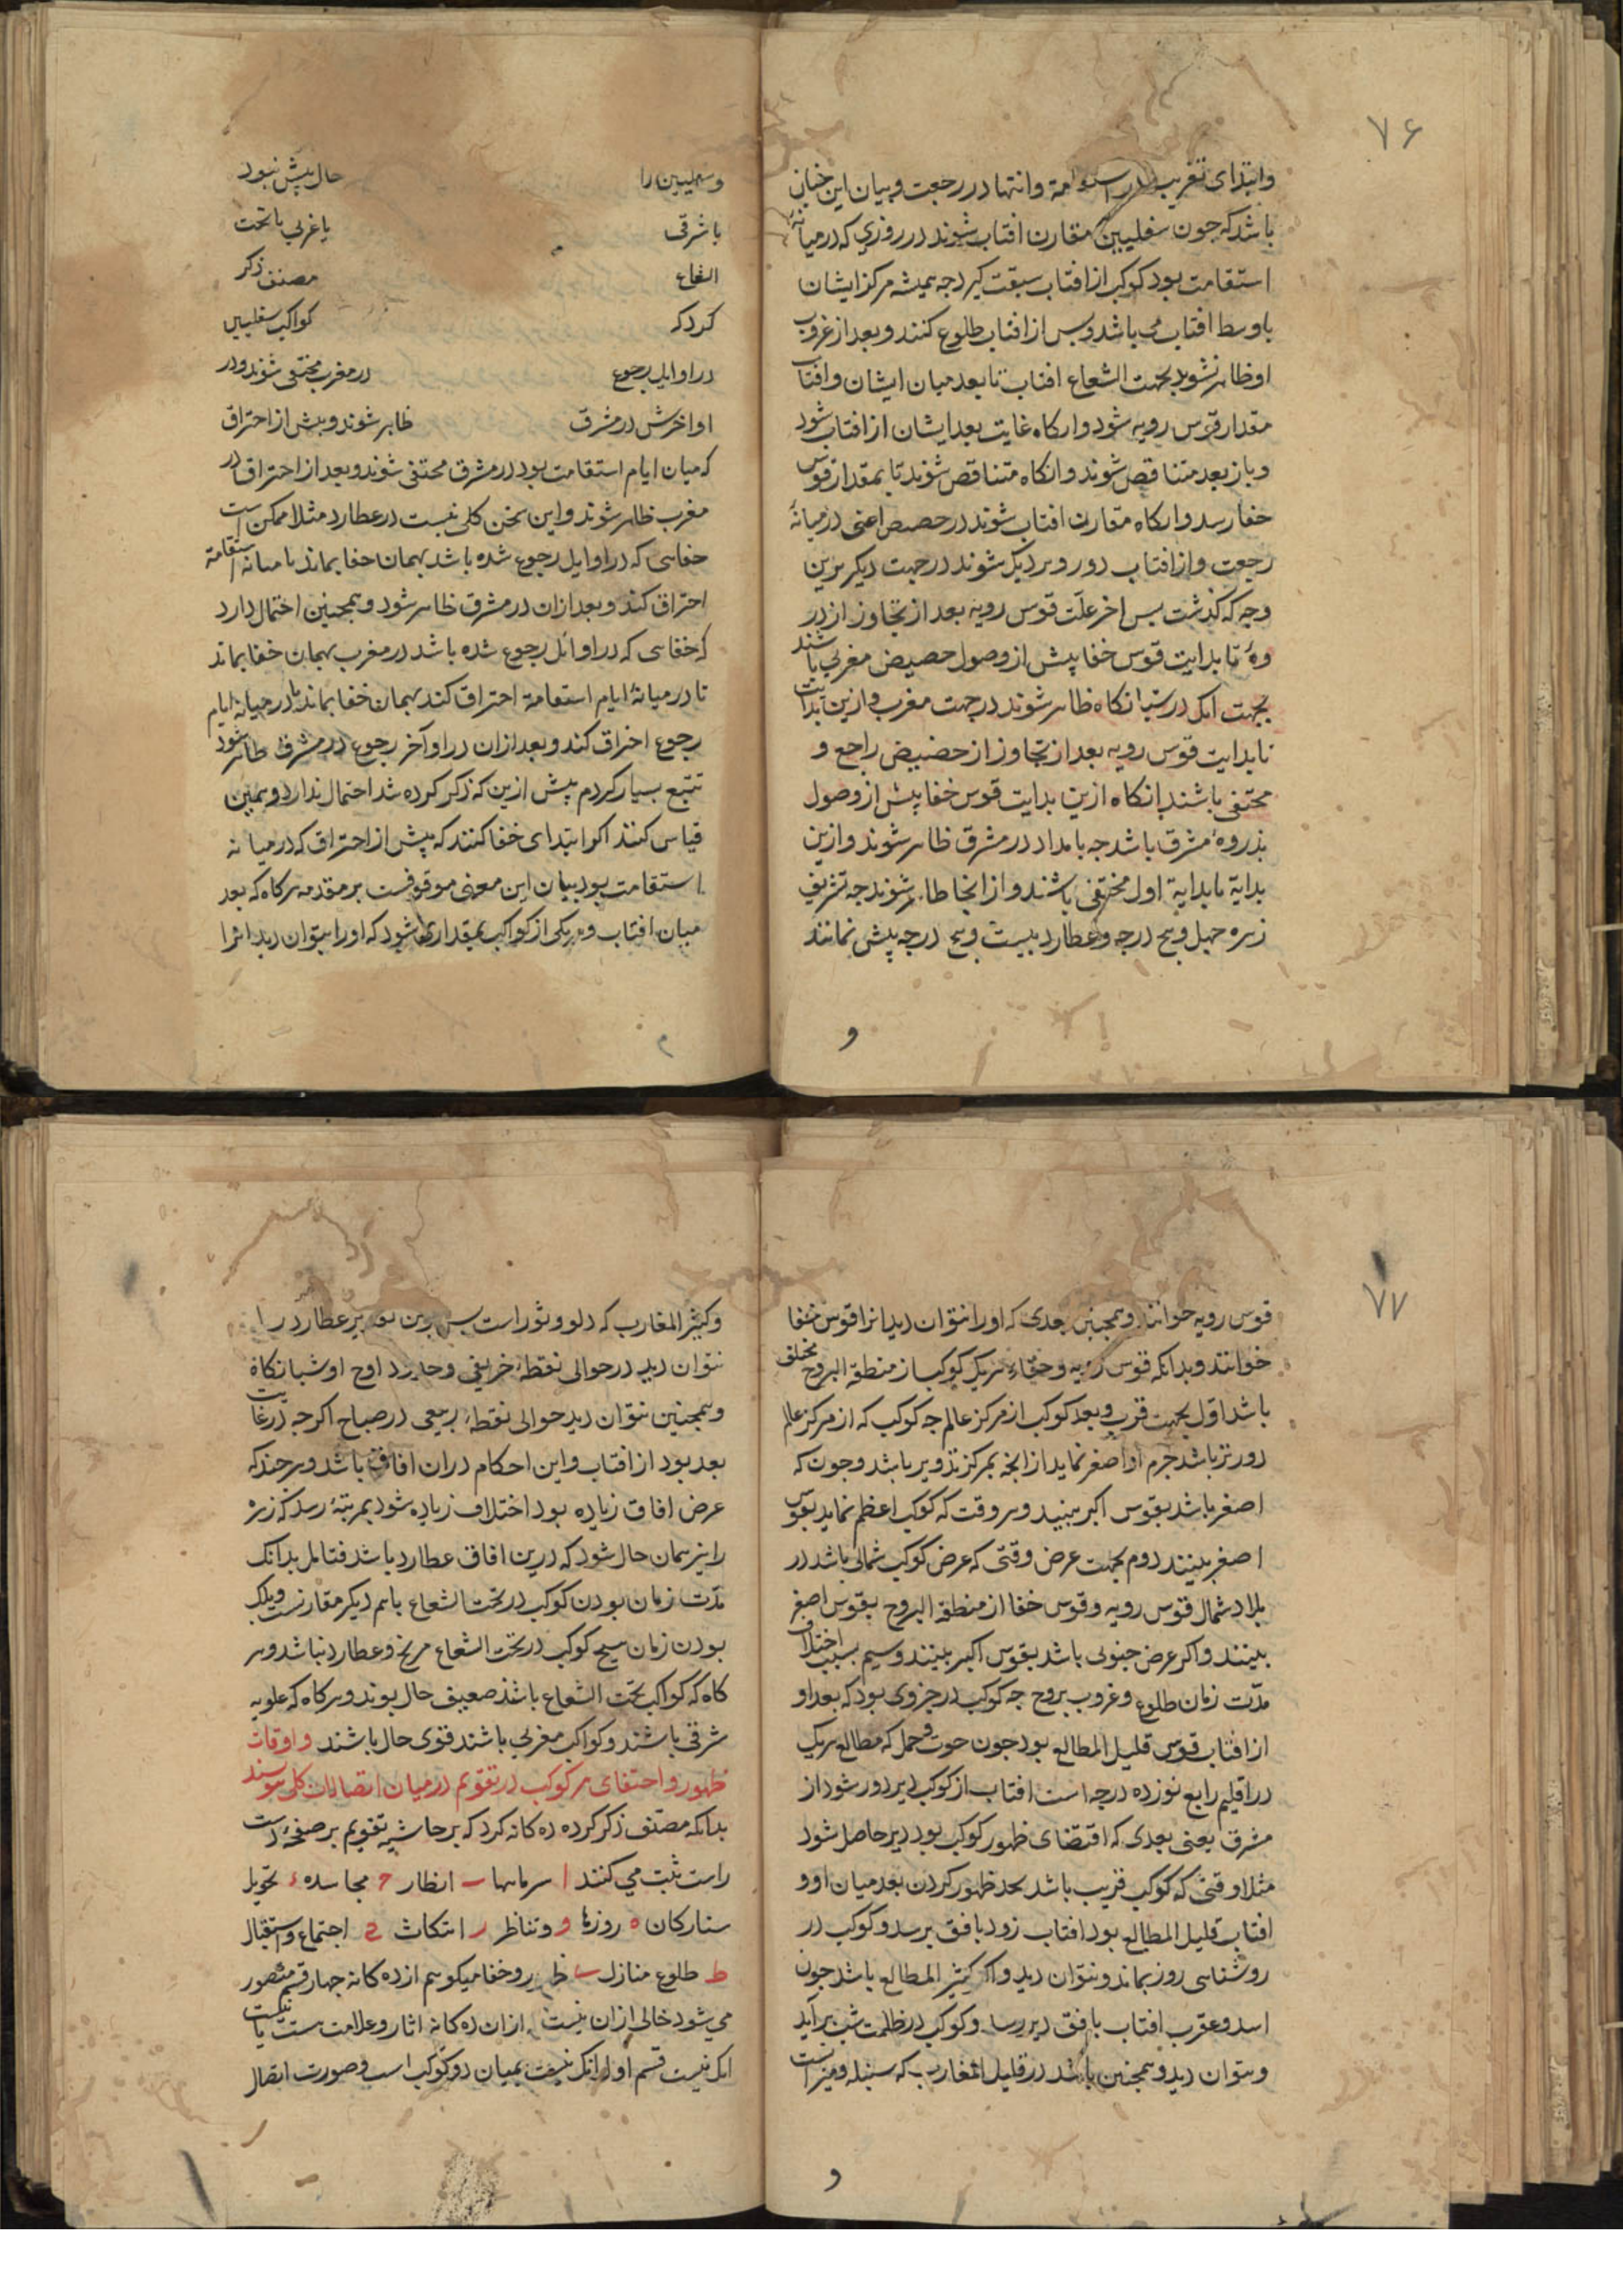 ۷۶
وابتدای تغریب در استقامة وانتها در رجعت وبیان این چنان
باشد که چون سفلیین مقارن افتاب شوند در روزی که در میانهٔ
استقامت بود کوکب از افتاب سبقت کیرد جه همیشه مرکز ایشان
با وسط افتاب می باشد وبس از افتاب طلوع کنند وبعد از غروب
او ظاهر نشوند بجهت الشعاع افتاب تا بعد میان ایشان وافتاب
مقدار قوس رویه شود وانکاه غایت بعد ایشان از افتاب شود
وباز بعد متناقص شوند وانکاه متناقص شوند تا بمقدار قوس
خفا رسد وانکاه مقارن افتاب شوند در حضیض اعنی در میانهٔ
رجعت واز افتاب دور ونزدیک شوند در جهت دیکر برین
وجه که کذشت بس اخر علت قوس رویه بعد از تجاوز از ذر
وهٔ تا بدایت قوس خفا پیش از وصول حضیض مغربی باشند
بجهت انک در شبانکاه ظاهر شوند در جهت مغرب وازین بدایت
تا بدایت قوس رویه بعد از تجاوز از حضیض راجع و
مختفی باشند انکاه ازین بدایت قوس خفا پیش از وصول
بذروهٔ مشرق باشد جه بامداد در مشرق ظاهر شوند وازین
بدایة تا بدایة اول مختفی باشند واز انجا ظاهر شوند جه تشریق
زهره جهل وپنج درجه وعطارد بیست وپنج درجه پیش نمانند
و
وسفلیین را حال پیش نبود
با شرقی یا غربی یا تحت
الشعاع مصنف ذکر
کرد که کواکب سفلیین
در اوایل رجوع در مغرب مختفی شوند ودر
اواخرش در مشرق ظاهر شوند وپیش از احتراق
که میان ایام استقامت بود در مشرق مختفی شوند وبعد از احتراق در
مغرب ظاهر شوند واین سخن کلی نیست در عطارد مثلا ممکن است
خفایی که در اوایل رجوع شده باشد بهمان خفا بماند تا میانه استقامة
احتراق کند وبعد ازان در مشرق ظاهر شود وهمچنین احتمال دارد
که خفایی که در اوائل رجوع شده باشد در مغرب بهمان خفا بماند
تا در میانهٔ ایام استقامة احتراق کند بهمان خفا بماند تا در میانه ایام
رجوع احتراق کند وبعد ازان در اواخر رجوع در مشرق ظاهر شود
تتبع بسیار کردم پیش ازین که ذکر کرده شد احتمال ندارد وهمین
قیاس کنند اکر ابتدای خفا کنند که پیش از احتراق که در میانه
استقامت بود بیان این معنی موقوفست بر مقدمه هرکاه که بعد
میان افتاب وهر یکی از کواکب بمقداری شود که اورا بتوان دید انرا
۷۷
قوس رویه خوانند وهمچنین بعدی که اورا نتوان دید انرا قوس خفا
خوانند وبدانکه قوس رویه وخفاء هر یک کوکب از منطقة البروج مختلف
باشد اول بجهت قرب وبعد کوکب از مرکز عالم جه کوکب که از مرکز عالم
دورتر باشد جرم او اصغر نماید از انجه بمرکز تدویر باشد وجون که
اصغر باشد بقوس اکبر ببیند وهر وقت که کوکب اعظم نماید بقوس
اصغر ببینند دوم بجهت عرض وقتی که عرض کوکب شمالی باشد در
بلاد شمال قوس رویه وقوس خفا از منطقة البروج بقوس اصغر
ببینند واکر عرض جنوبی باشد بقوس اکبر ببینند وسیم بسبب اختلاف
مدت زمان طلوع وغروب بروج جه کوکب در جزوی بود که بعد او
از افتاب قوس قلیل المطالع بود جون حوت وحمل که مطالع هر یک
در اقلیم رابع نوزده درجه است افتاب از کوکب دیر دور شود از
مشرق یعنی بعدی که اقتضای ظهور کوکب بود دیر حاصل شود
مثلا وقتی که کوکب قریب باشد بحد ظهور کردن بعد میان او و
افتاب قلیل المطالع بود افتاب زود بافق برسد وکوکب در
روشنایی روز بماند ونتوان دید واکر کثیر المطالع باشد جون
اسد وعقرب افتاب بافق دیر رسد وکوکب در ظلمت شب برآید
وبتوان دید وهمچنین باشد در قلیل المغارب که سنبله ومیزانست
و
وکثیر المغارب که دلو وثور است عطارد را
نتوان دید در حوالی نقطهٔ خریفی وحدود اوج او شبانکاه
وهمچنین نتوان دید حوالی نقطهٔ ربیعی در صباح اکرجه در غایت
بعد بود از افتاب واین احکام دران افاق باشد وهرجند که
عرض افاق زیاده بود اختلاف زیاده شود بمرتبهٔ رسد که زهره
را نیز همان حال شود که درین افاق عطارد باشد فتامل بدانک
مدت زمان بودن کوکب در تحت الشعاع باهم دیکر مقارنست ولیک
بودن زمان هیچ کوکب در تحت الشعاع مریخ وعطارد نباشد وهر
کاه که کواکب تحت الشعاع باشند ضعیف حال بوند وهرکاه که علویه
شرقی باشند وکواکب مغربی باشند قوی حال باشند واوقات
ظهور واختفای هر کوکب در تقویم در میان اتصالات کلی نویسند
بدانکه مصنف ذکر کرده ده کانه کرد که بر حاشیه تقویم بر صفحهٔ دست
راست ثبت می کنند ا ب انظار ح مجاسده ء تحویل
ستارکان ه روزها و وتناظر ر انتکاث ح اجتماع واستقبال
ط طلوع منازل ی ظهور وخفا میکویم از ده کانه جهار قسم متصور
می شود خالی ازان نیست ازان ده کانه اثار وعلامت هست یا نیست
انک نیست قسم اول انک نیست بمیان دو کوکب است وصورت اتصال